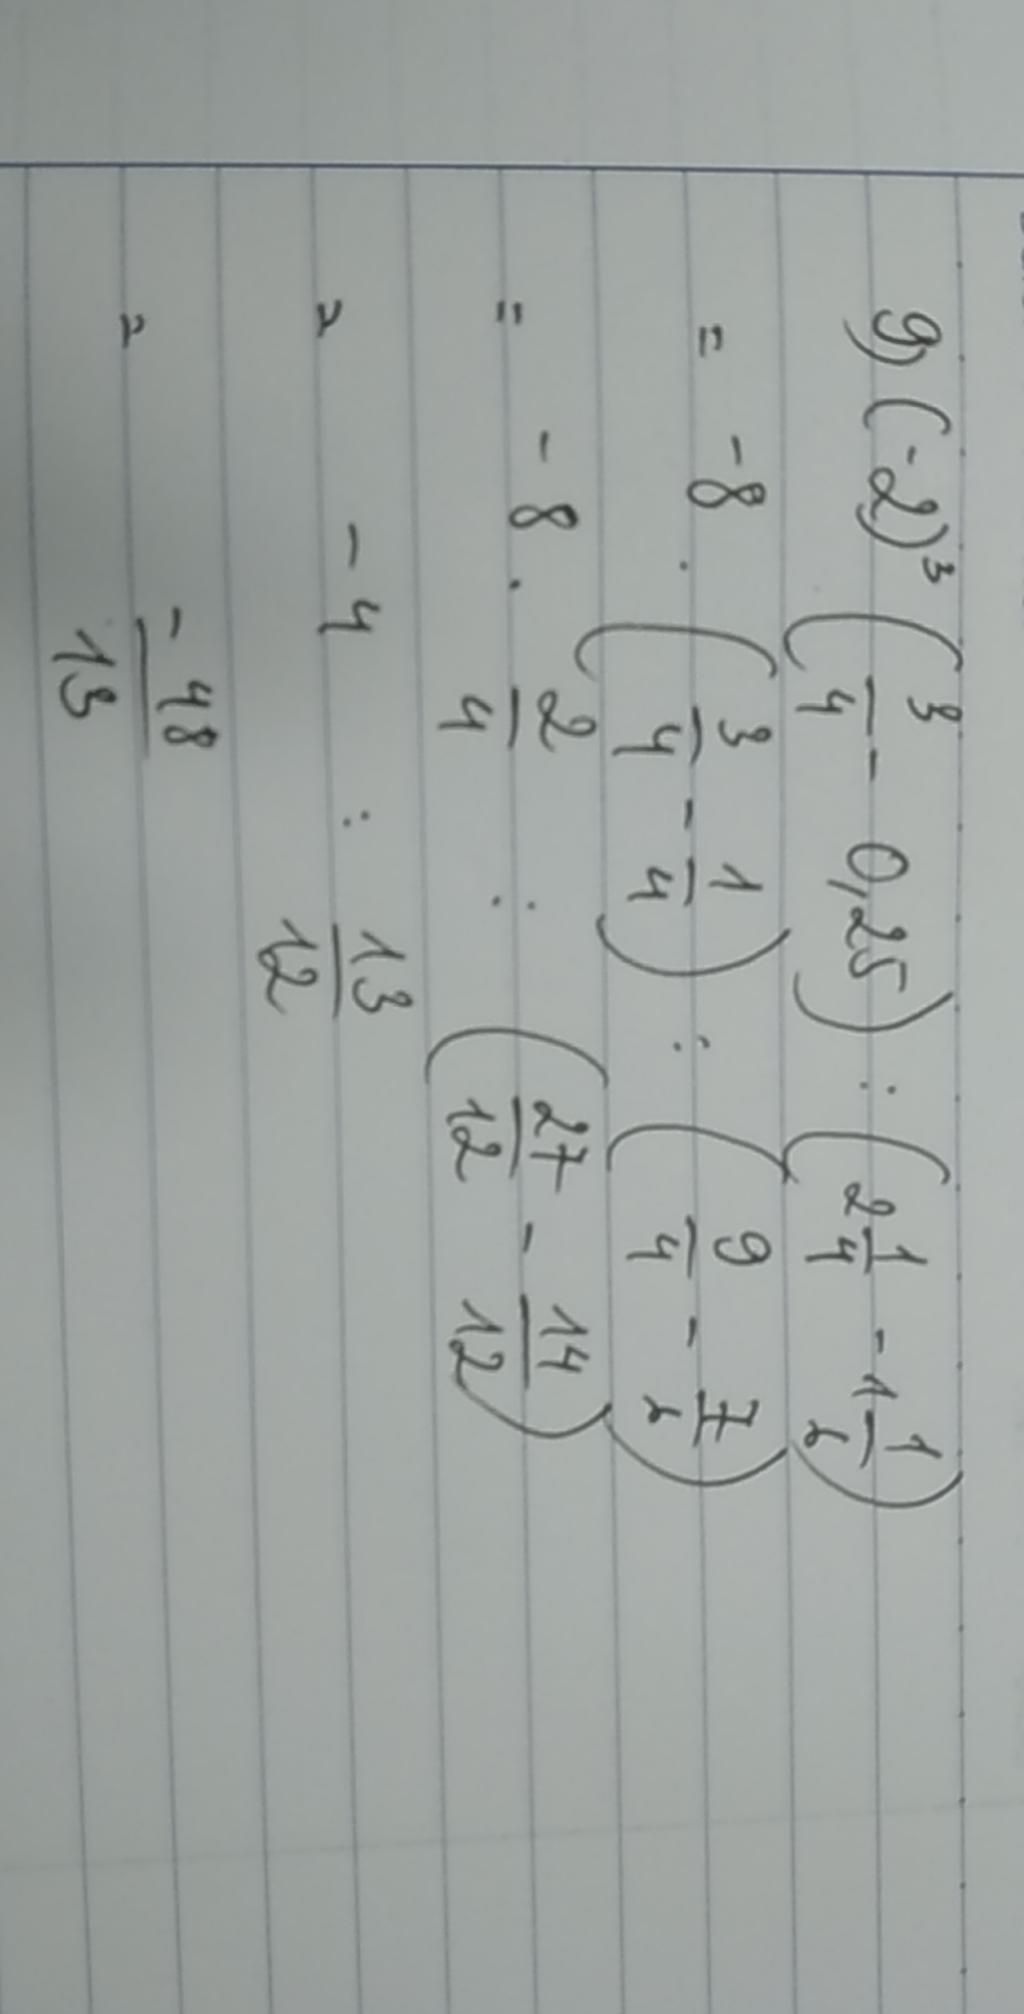 g) (-2)³ (3/4 - 0,25) : (2 1/4 - 1 1/6)
= -8 . (3/4 - 1/4) : (9/4 - 7/6)
= -8 . 2/4 : (27/12 - 14/12)
= -4 : 13/12
= -48/13